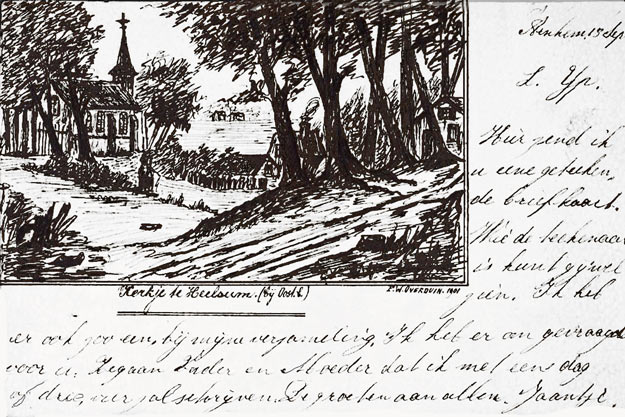 Arnhem, 15 Sep
L. Yp.
Hier zend ik
u eene geteeken
de briefkaart.
Wie de teekenaar
is kunt gij wel
zien. Ik heb
Kerkje te Heelsum. (bij Oostb.)
P.W. OVERDUIN. 1901
er ook zoo een, bij mijne verzameling. Ik heb er om gevraagd
voor u. Zegaan Vader en Moeder dat ik met een dag
of drie, vier zal schrijven. De groeten aan allen. Jaantje.